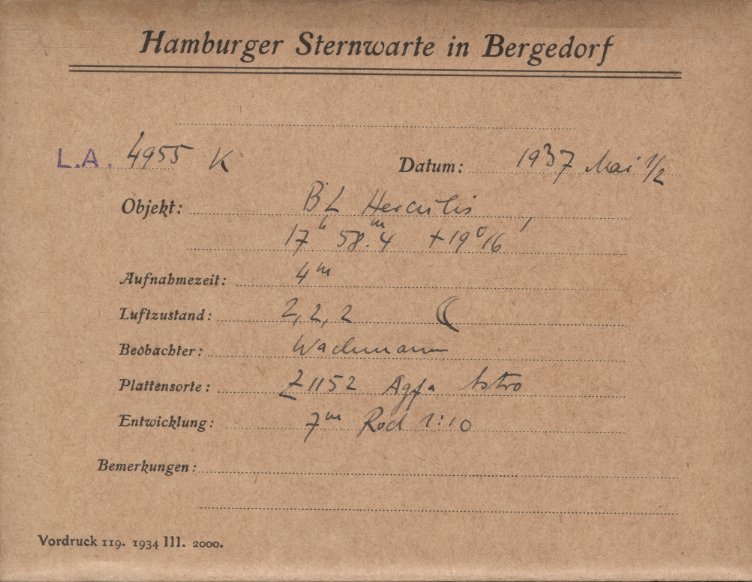 Hamburger Sternwarte in Bergedorf
L.A. 4955 K Datum: 1937 Mai 1/2
Objekt: BL Herculis
17h 58.m4 +19°16'
Aufnahmezeit: 4m
Luftzustand: 2, 2, 2
Beobachter: Wachmann
Plattensorte: Z1152 Agfa Astro
Entwicklung: 7m Rod 1:10
Bemerkungen:
Vordruck 119. 1934 III. 2000.